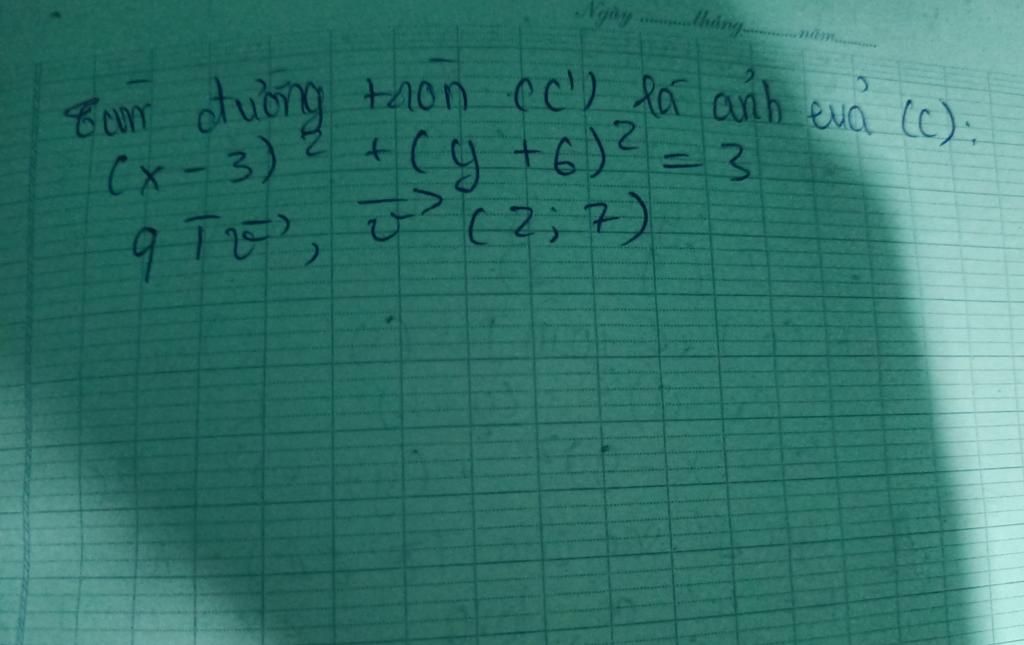 Ngày..........tháng..........năm..........
đường tròn (C') là ảnh của (C):
(x - 3)² + (y + 6)² = 3
q Tv⃗, v⃗ (2; 7)